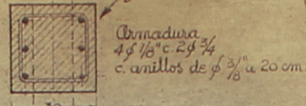 Armadura
4 ϕ 1/8" c. 2 ϕ 3/4
c. anillos de ϕ 3/8" a 20 cm